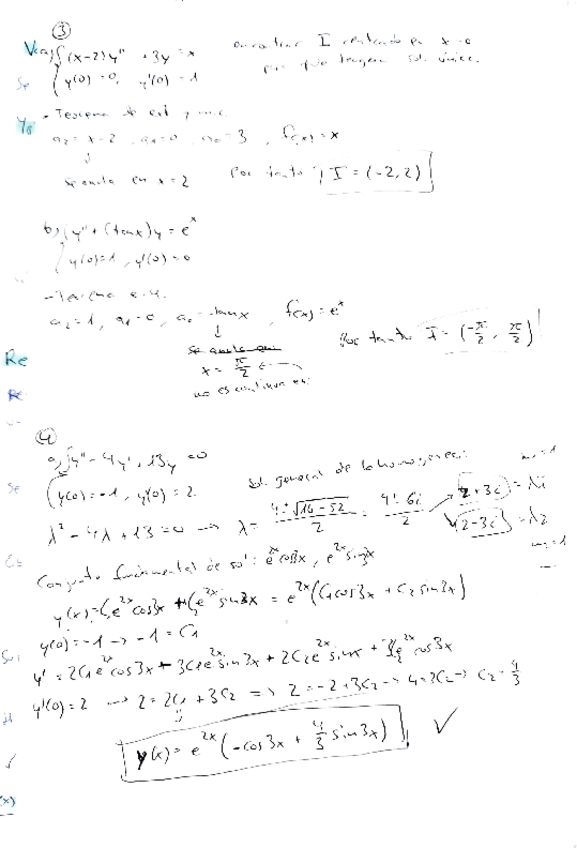 ③
a) (x-2)y'' + 3y = x encontrar I centrado en x=0
y(0)=0, y'(0)=1 para que tengan sol. única.
- Teorema de
a₂ = x-2, a₁=0, a₀=3, f(x)=x
↓
se anula en x=2 Por tanto, I = (-2,2)
b) y'' + (tan x)y = e^x
y(0)=1, y'(0)=0
- Teorema
a₂=1, a₁=0, a₀=tan x, f(x)=e^x
↓
Por tanto I = (-π/2, π/2)
x = π/2
no es continua en
④
a) y'' - 4y' + 13y = 0
y(0)=-1, y'(0)=2 Sol. general de la homogénea: m=1
λ² - 4λ + 13 = 0 → λ = (4 ± √(16-52))/2 = (4 ± 6i)/2 2+3i = λ₁
2-3i = λ₂
m₂=1
Conjunto fundamental de sol: e^2x cos3x, e^2x sin3x
y(x) = C₁e^2x cos3x + C₂e^2x sin3x = e^2x(C₁cos3x + C₂ sin3x)
y(0) = -1 → -1 = C₁
y' = 2C₁e^2x cos3x + 3C₁e^2x sin3x + 2C₂e^2x sinx + 3C₂e^2x cos3x
y'(0)=2 → 2 = 2C₁ + 3C₂ ⇒ 2 = -2+3C₂ → 4 = 3C₂ → C₂ = 4/3
y(x) = e^2x (-cos3x + 4/3 sin3x) ✓